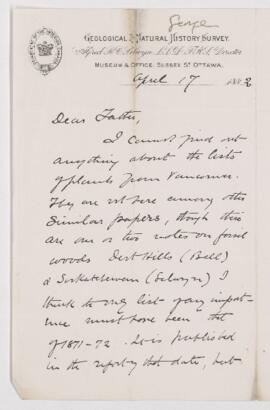 George
GEOLOGICAL & NATURAL HISTORY SURVEY.
Alfred R. C. Selwyn, L.L.D., F.R.S., Director
MUSEUM & OFFICE, SUSSEX ST OTTAWA.
April 17 1882
Dear Father,
I cannot find out
anything about the lists
of plants from Vancouver.
They are not here among other
Similar papers, though there
are one or two notes on fossil
woods Dirt Hills (Bell)
& Saskatchewan (Selwyn) I
think the only list of any import-
ance must have been that
of 1871-72. It is published
in the report of that date, but